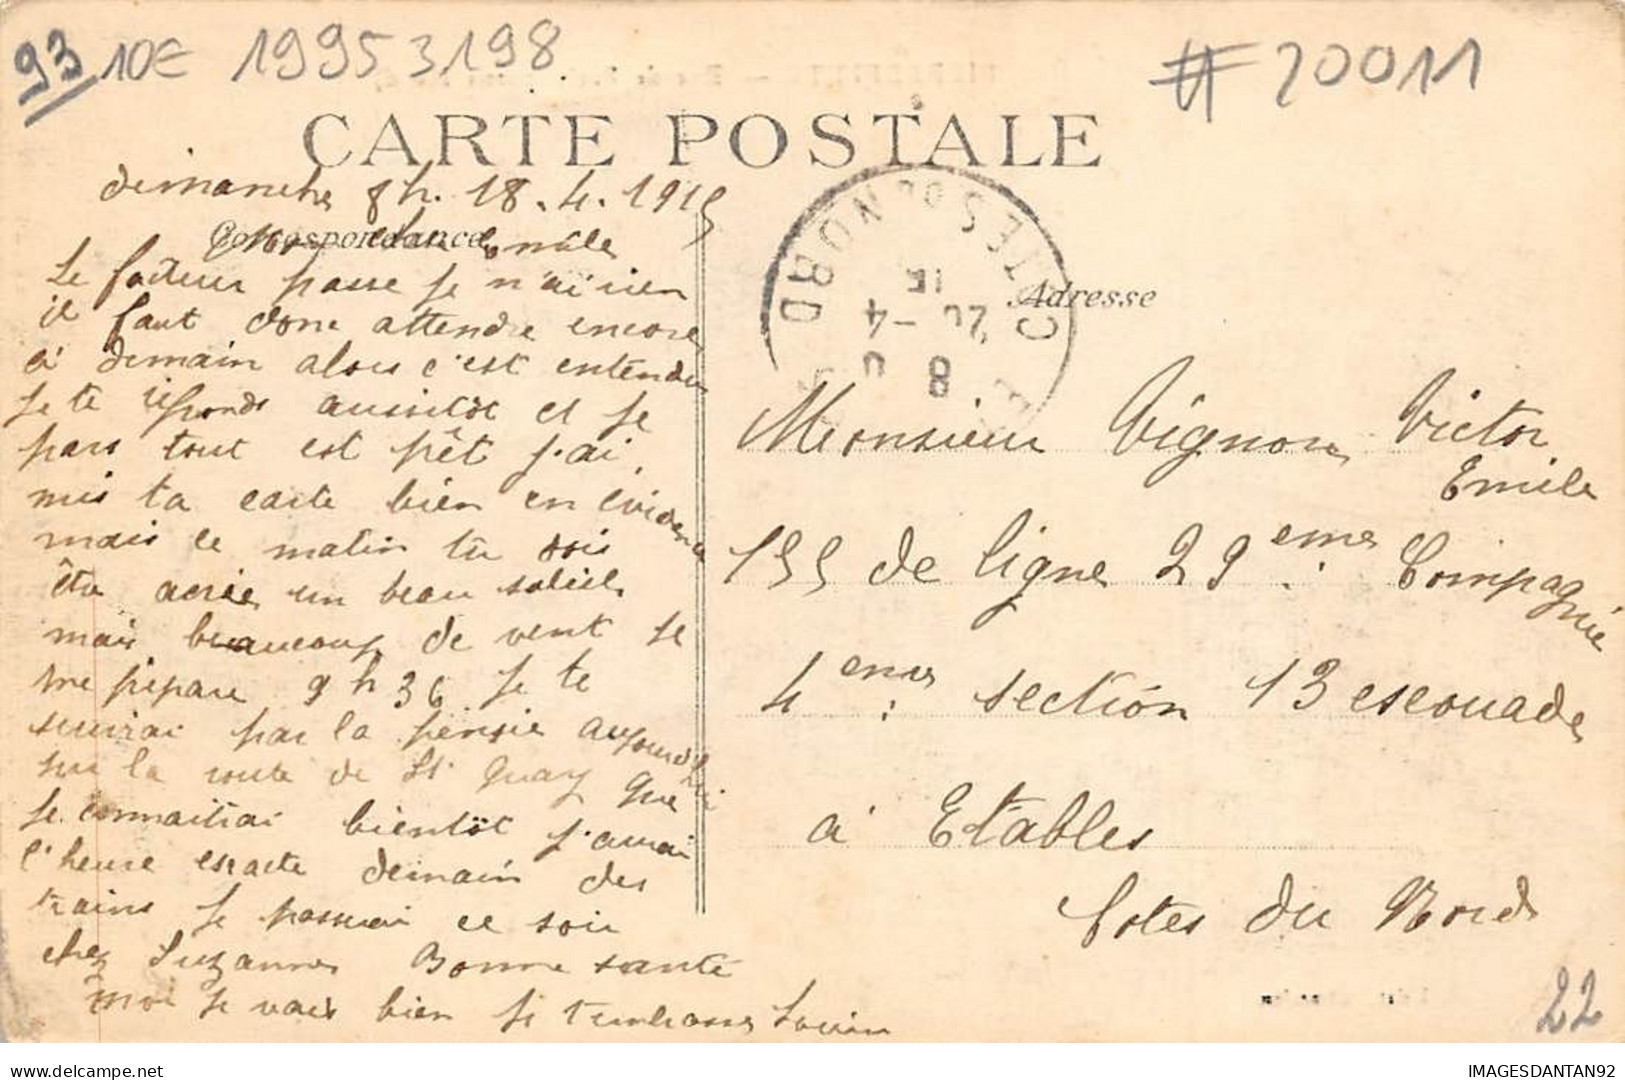 93 10€ 19953198
# 20011
CARTE POSTALE
dimanche 8h. 18.4.1915
Correspondance
Le facteur passe je n'ai rien
il faut donc attendre encore
à demain alors c'est entendu
je te réponds aussitôt et je
pars tout est prêt j'ai
mis ta carte bien en évidence
mais ce matin tu dois
être avec un beau soleil
mais beaucoup de vent je
me prépare 9h36 je te
suivrai par la pensée aujourd'hui
sur la route de St Quay que
je connaîtrai bientôt j'aurai
l'heure exacte demain des
trains je passerai ce soir
chez Suzanne Bonne santé
moi je vais bien je t'embrasse
COTES DU NORD
8
20 -4
15
Adresse
Monsieur Vignon Victor
Emile
155 de ligne 29eme : Compagnie
4eme : section 13 escouade
à Etables
Cotes du Nord
22
IMAGESDANTAN92